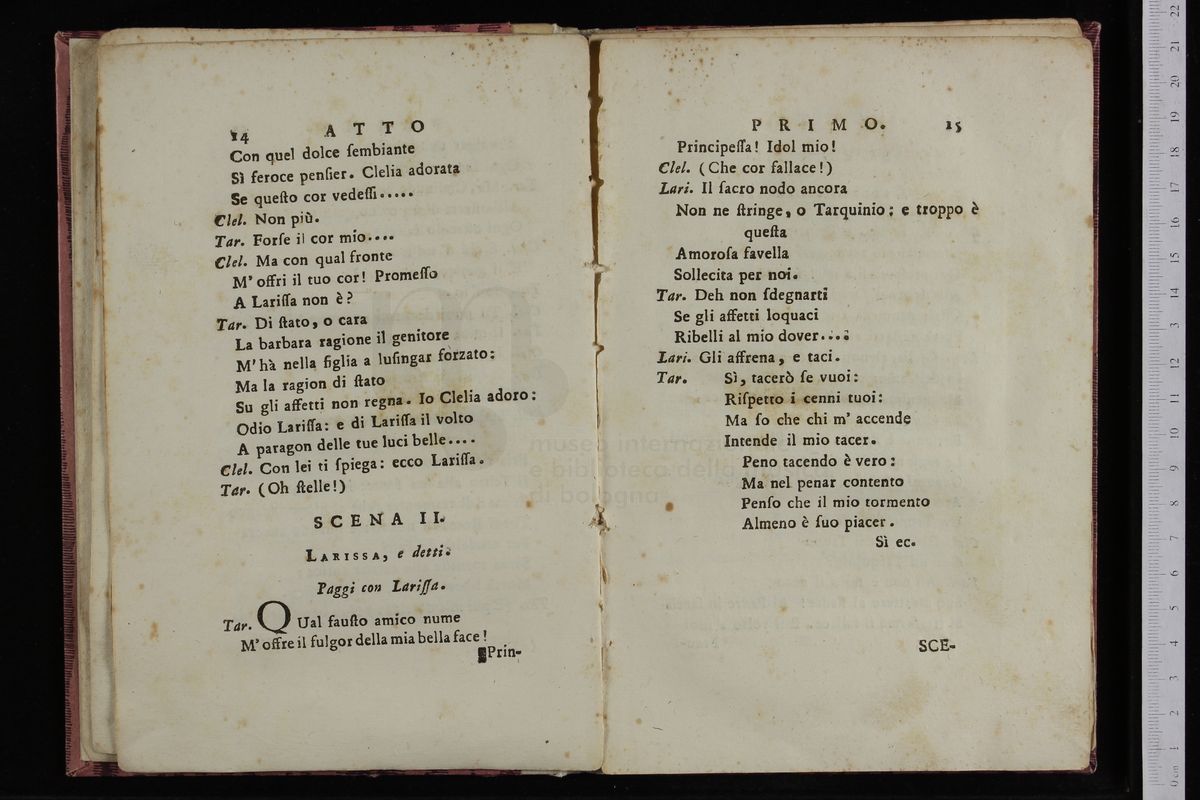 14 ATTO
Con quel dolce ſembiante
Sì feroce penſier. Clelia adorata
Se queſto cor vedeſſi.....
Clel. Non più.
Tar. Forſe il cor mio....
Clel. Ma con qual fronte
M' offri il tuo cor! Promeſſo
A Lariſſa non è?
Tar. Di ſtato, o cara
La barbara ragione il genitore
M' hà nella figlia a luſingar forzato:
Ma la ragion di ſtato
Su gli affetti non regna. Io Clelia adoro:
Odio Lariſſa: e di Lariſſa il volto
A paragon delle tue luci belle....
Clel. Con lei ti ſpiega: ecco Lariſſa.
Tar. (Oh ſtelle!)
SCENA II.
LARISSA, e detti.
Paggi con Lariſſa.
Tar. QUal fauſto amico nume
M' offre il fulgor della mia bella face!
Prin-
PRIMO. 15
Principeſſa! Idol mio!
Clel. (Che cor fallace!)
Lari. Il ſacro nodo ancora
Non ne ſtringe, o Tarquinio; e troppo è
queſta
Amoroſa favella
Sollecita per noi.
Tar. Deh non ſdegnarti
Se gli affetti loquaci
Ribelli al mio dover....
Lari. Gli affrena, e taci.
Tar. Sì, tacerò ſe vuoi:
Riſpetto i cenni tuoi:
Ma ſo che chi m' accende
Intende il mio tacer.
Peno tacendo è vero:
Ma nel penar contento
Penſo che il mio tormento
Almeno è ſuo piacer.
Sì ec.
SCE-
museo internaz
e biblioteca della
di bologna